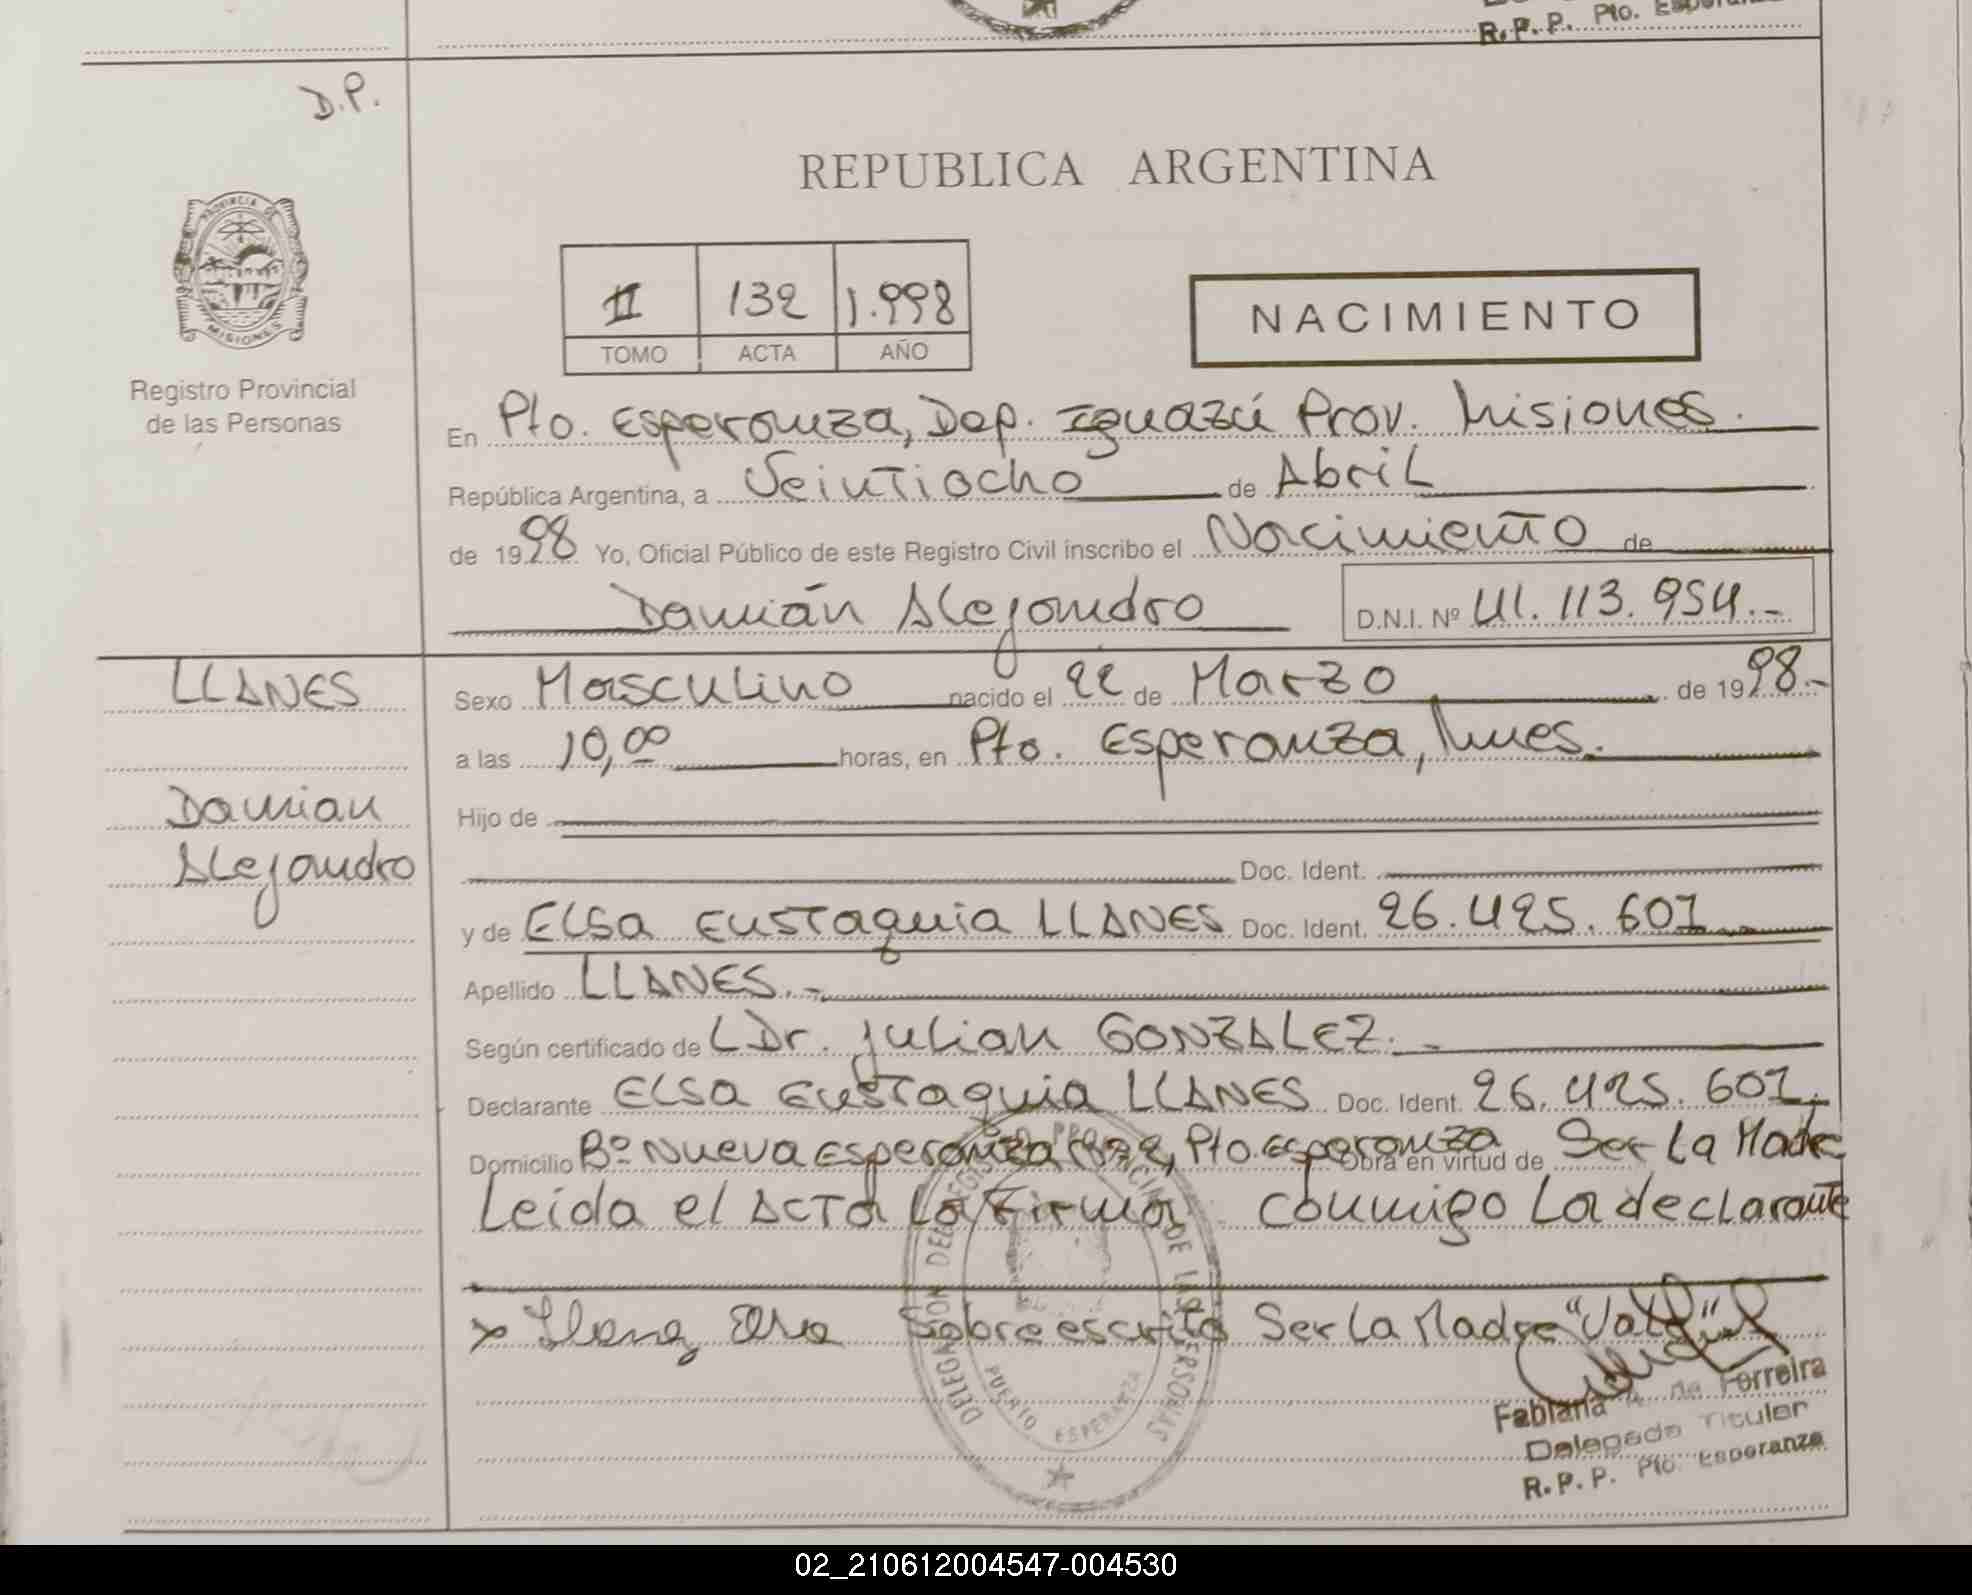 R.P.P. Pto.
D.P.
REPUBLICA ARGENTINA
PROVINCIA DE MISIONES
Registro Provincial
de las Personas
II 132 1.998
TOMO ACTA AÑO
NACIMIENTO
En Pto. Esperanza, Dep. Iguazú Prov. Misiones.
República Argentina, a Veintiocho de Abril
de 1998 Yo, Oficial Público de este Registro Civil inscribo el Nacimiento de
Damián Alejandro D.N.I. Nº 41.113.954.-
LLANES
Sexo Masculino nacido el 22 de Marzo de 1998.-
a las 10,00 horas, en Pto. Esperanza, Mnes.
Damian
Hijo de
Alejandro
Doc. Ident.
y de ELSA EUSTAQUIA LLANES Doc. Ident. 26.425.601
Apellido LLANES.-
Según certificado de L Dr. Julian GONZALEZ.-
Declarante ELSA EUSTAQUIA LLANES Doc. Ident. 26.425.601,
Domicilio Bº Nueva Esperanza Pto. Esperanza Obra en virtud de Ser La Madre
Leida el Acta La Firma conmigo La declarante
x Llanes Elsa Sobre escrito Ser La Madre "Vale"
DELEGACION DEL REGISTRO PROVINCIAL DE LAS PERSONAS
PUERTO ESPERANZA
Fabiana A. de Ferreira
Delegada Titular
R.P.P. Pto. Esperanza
02_210612004547-004530